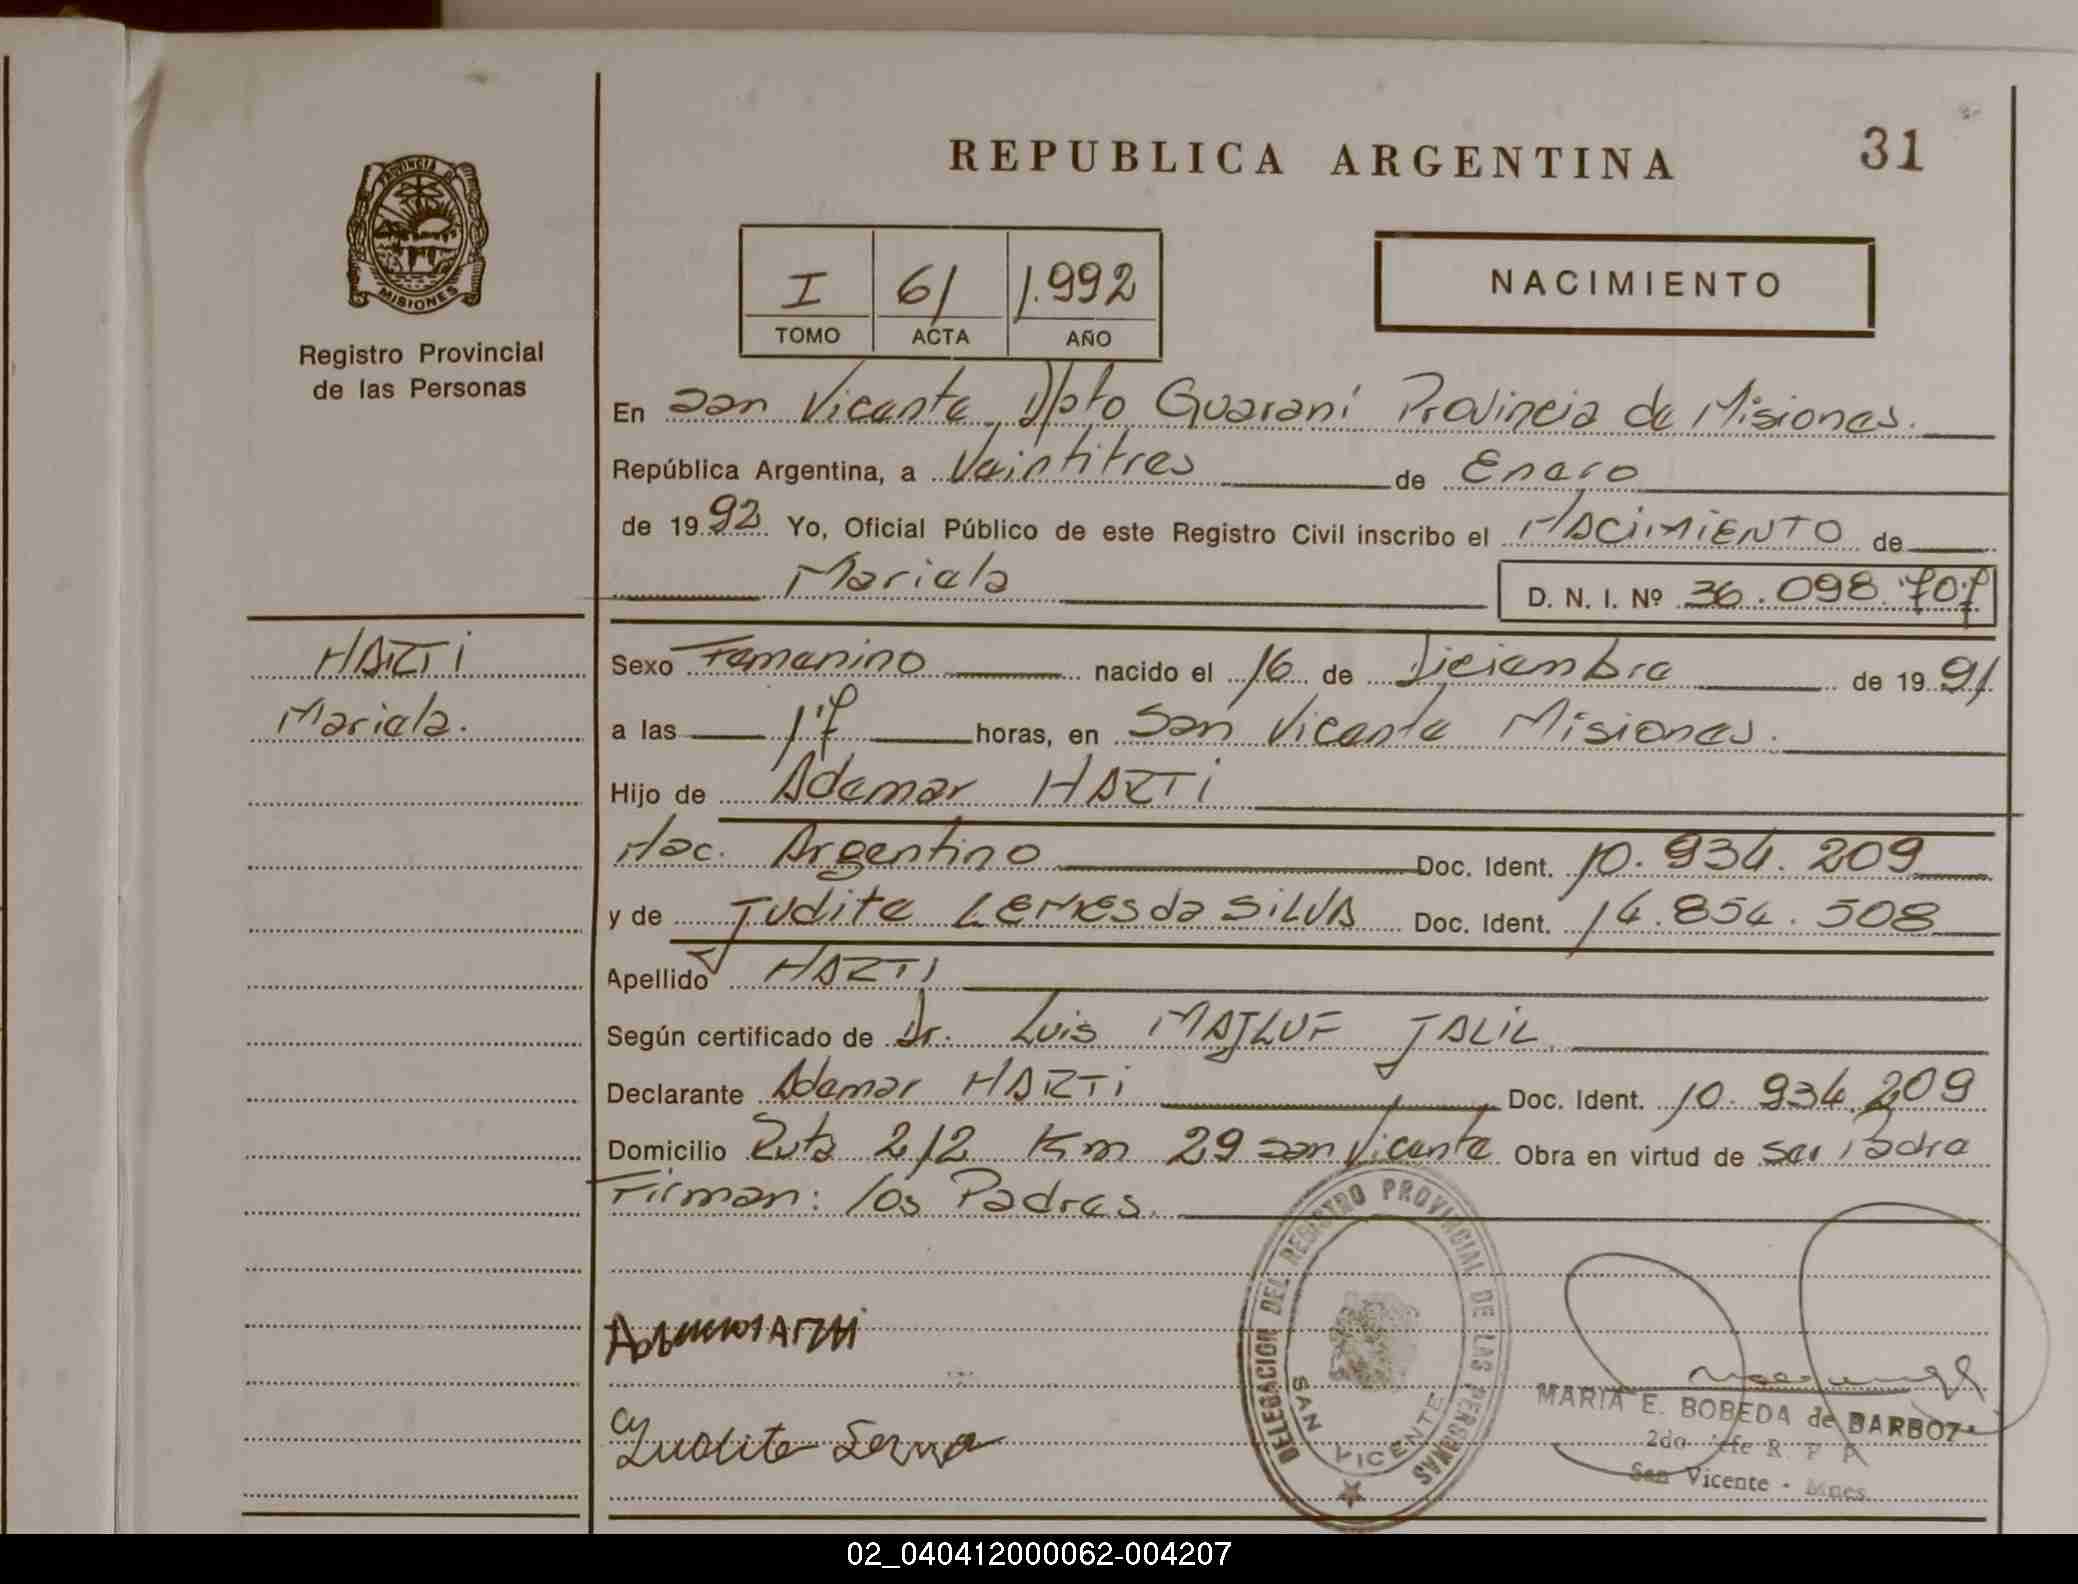 REPUBLICA ARGENTINA
31
PROVINCIA DE
MISIONES
Registro Provincial
de las Personas
I 61 1.992
TOMO ACTA AÑO
NACIMIENTO
En San Vicente Dpto Guaraní Provincia de Misiones.
República Argentina, a Veintitres de Enero
de 1992 Yo, Oficial Público de este Registro Civil inscribo el NACIMIENTO de
Mariela
D. N. I. Nº 36.098.707
HARTI
Mariela.
Sexo Femenino nacido el 16 de Diciembre de 1991
a las 17 horas, en San Vicente Misiones.
Hijo de Ademar HARTI
Nac. Argentino Doc. Ident. 10.934.209
y de Judite LEMES da SILVA Doc. Ident. 14.854.508
Apellido HARTI
Según certificado de Dr. Luis MAJLUF JALIL
Declarante Ademar HARTI Doc. Ident. 10.934.209
Domicilio Ruta 212 Km 29 San Vicente Obra en virtud de ser Padre
Firman: los Padres.
DELEGACION DEL REGISTRO PROVINCIAL DE LAS PERSONAS
SAN VICENTE
Judite
MARIA E. BOBEDA de BARBOZA
2do Jefe R. P. P.
San Vicente - Mnes.
02_040412000062-004207